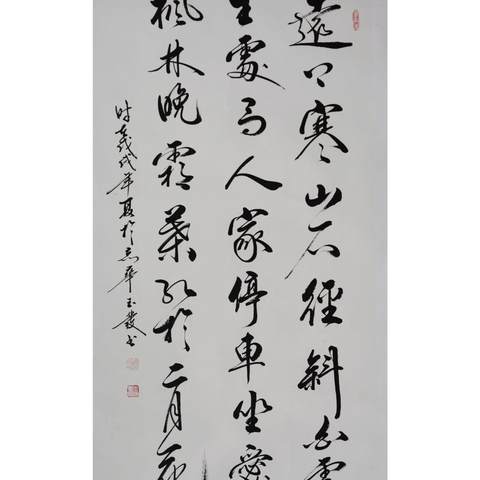 遠上寒山石徑斜白雲
生處有人家停車坐愛
楓林晚霜葉紅於二月花
时在戊戌年夏於京華玉發书